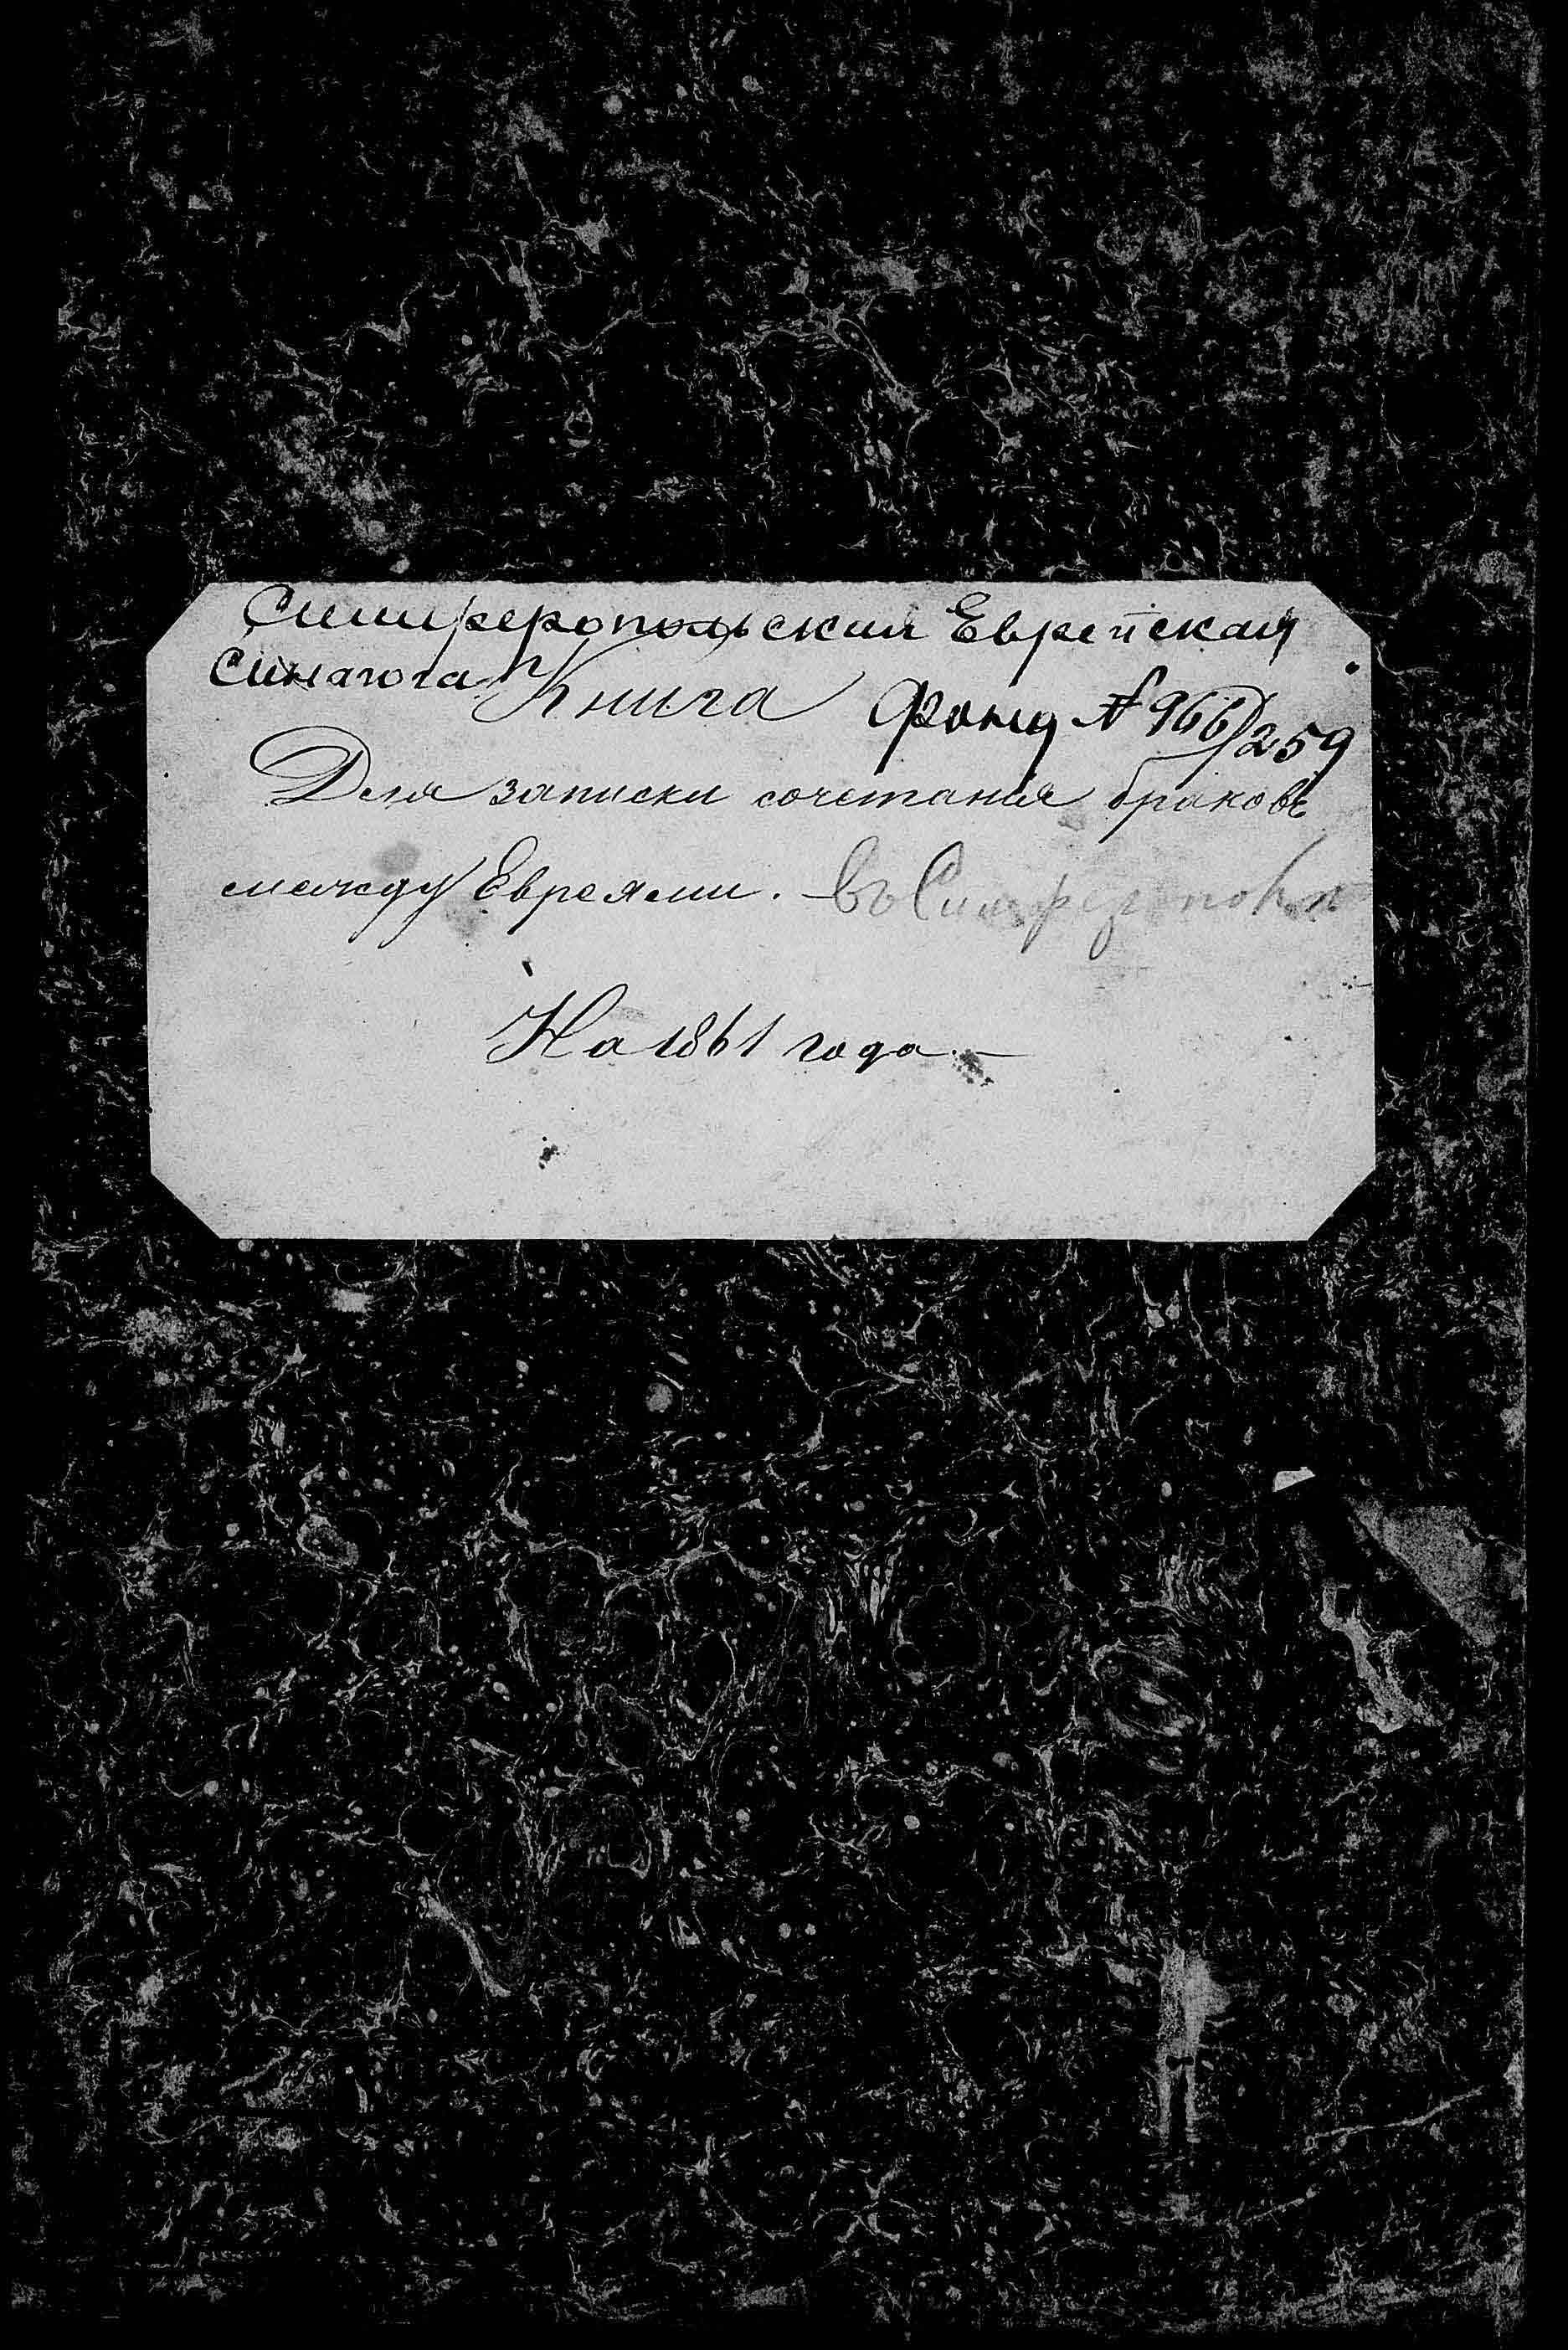 Симферопольский Еврейская
Синагога Книга Фонд № 966/259
Для записки сочетания браковъ
между Евреями. – въ Симферополѣ
На 1861 года. –